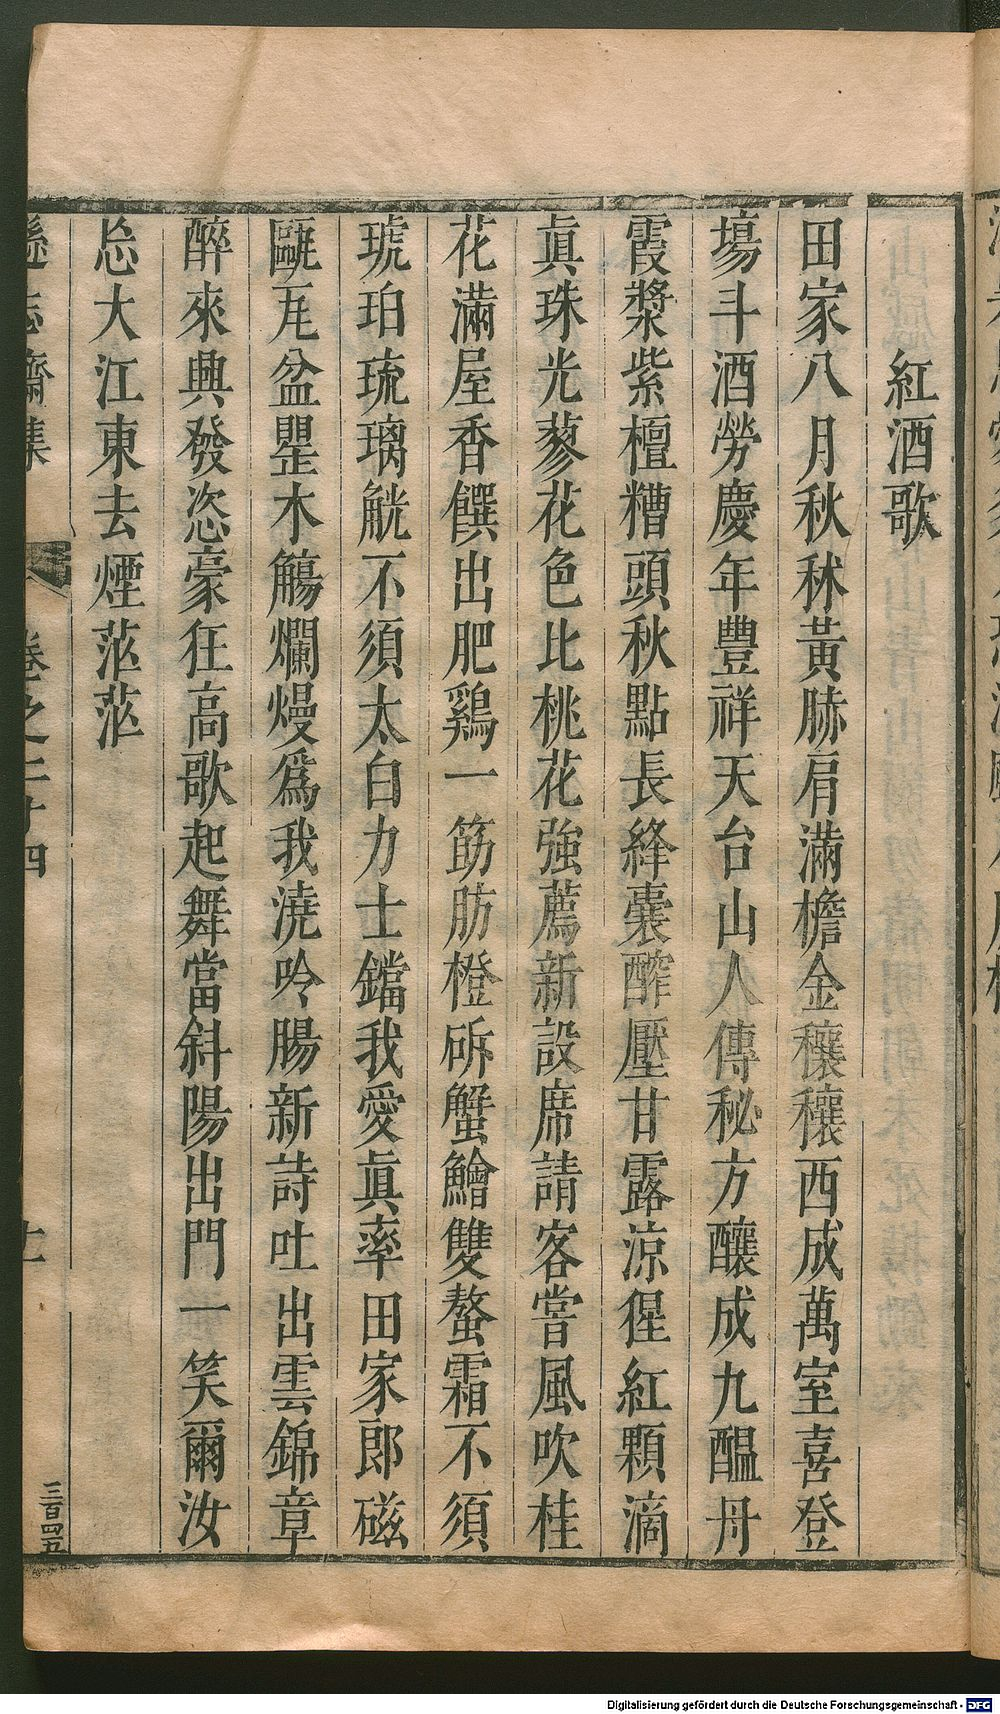 紅酒歌
田家八月秋秫黃肺肩滿檐金穰穰西成萬室喜登
塲斗酒勞慶年豐祥天台山人傳秘方釀成九醞丹
霞漿紫檀糟頭秋點長絳囊醡壓甘露涼猩紅顆滴
眞珠光蓼花色比桃花強薦新設席請客嘗風吹桂
花滿屋香饌出肥鷄一筯肪橙斫蟹鱠雙螯霜不須
琥珀琉璃觥不須太白力士鐺我愛眞率田家郎磁
甌瓦盆罌木觴爛熳爲我澆吟腸新詩吐出雲錦章
醉來興發恣豪狂高歌起舞當斜陽出門一笑爾汝
忘大江東去煙茫茫
遜志齋集
卷之二十四
三百四五
Digitalisierung gefördert durch die Deutsche Forschungsgemeinschaft - DFG